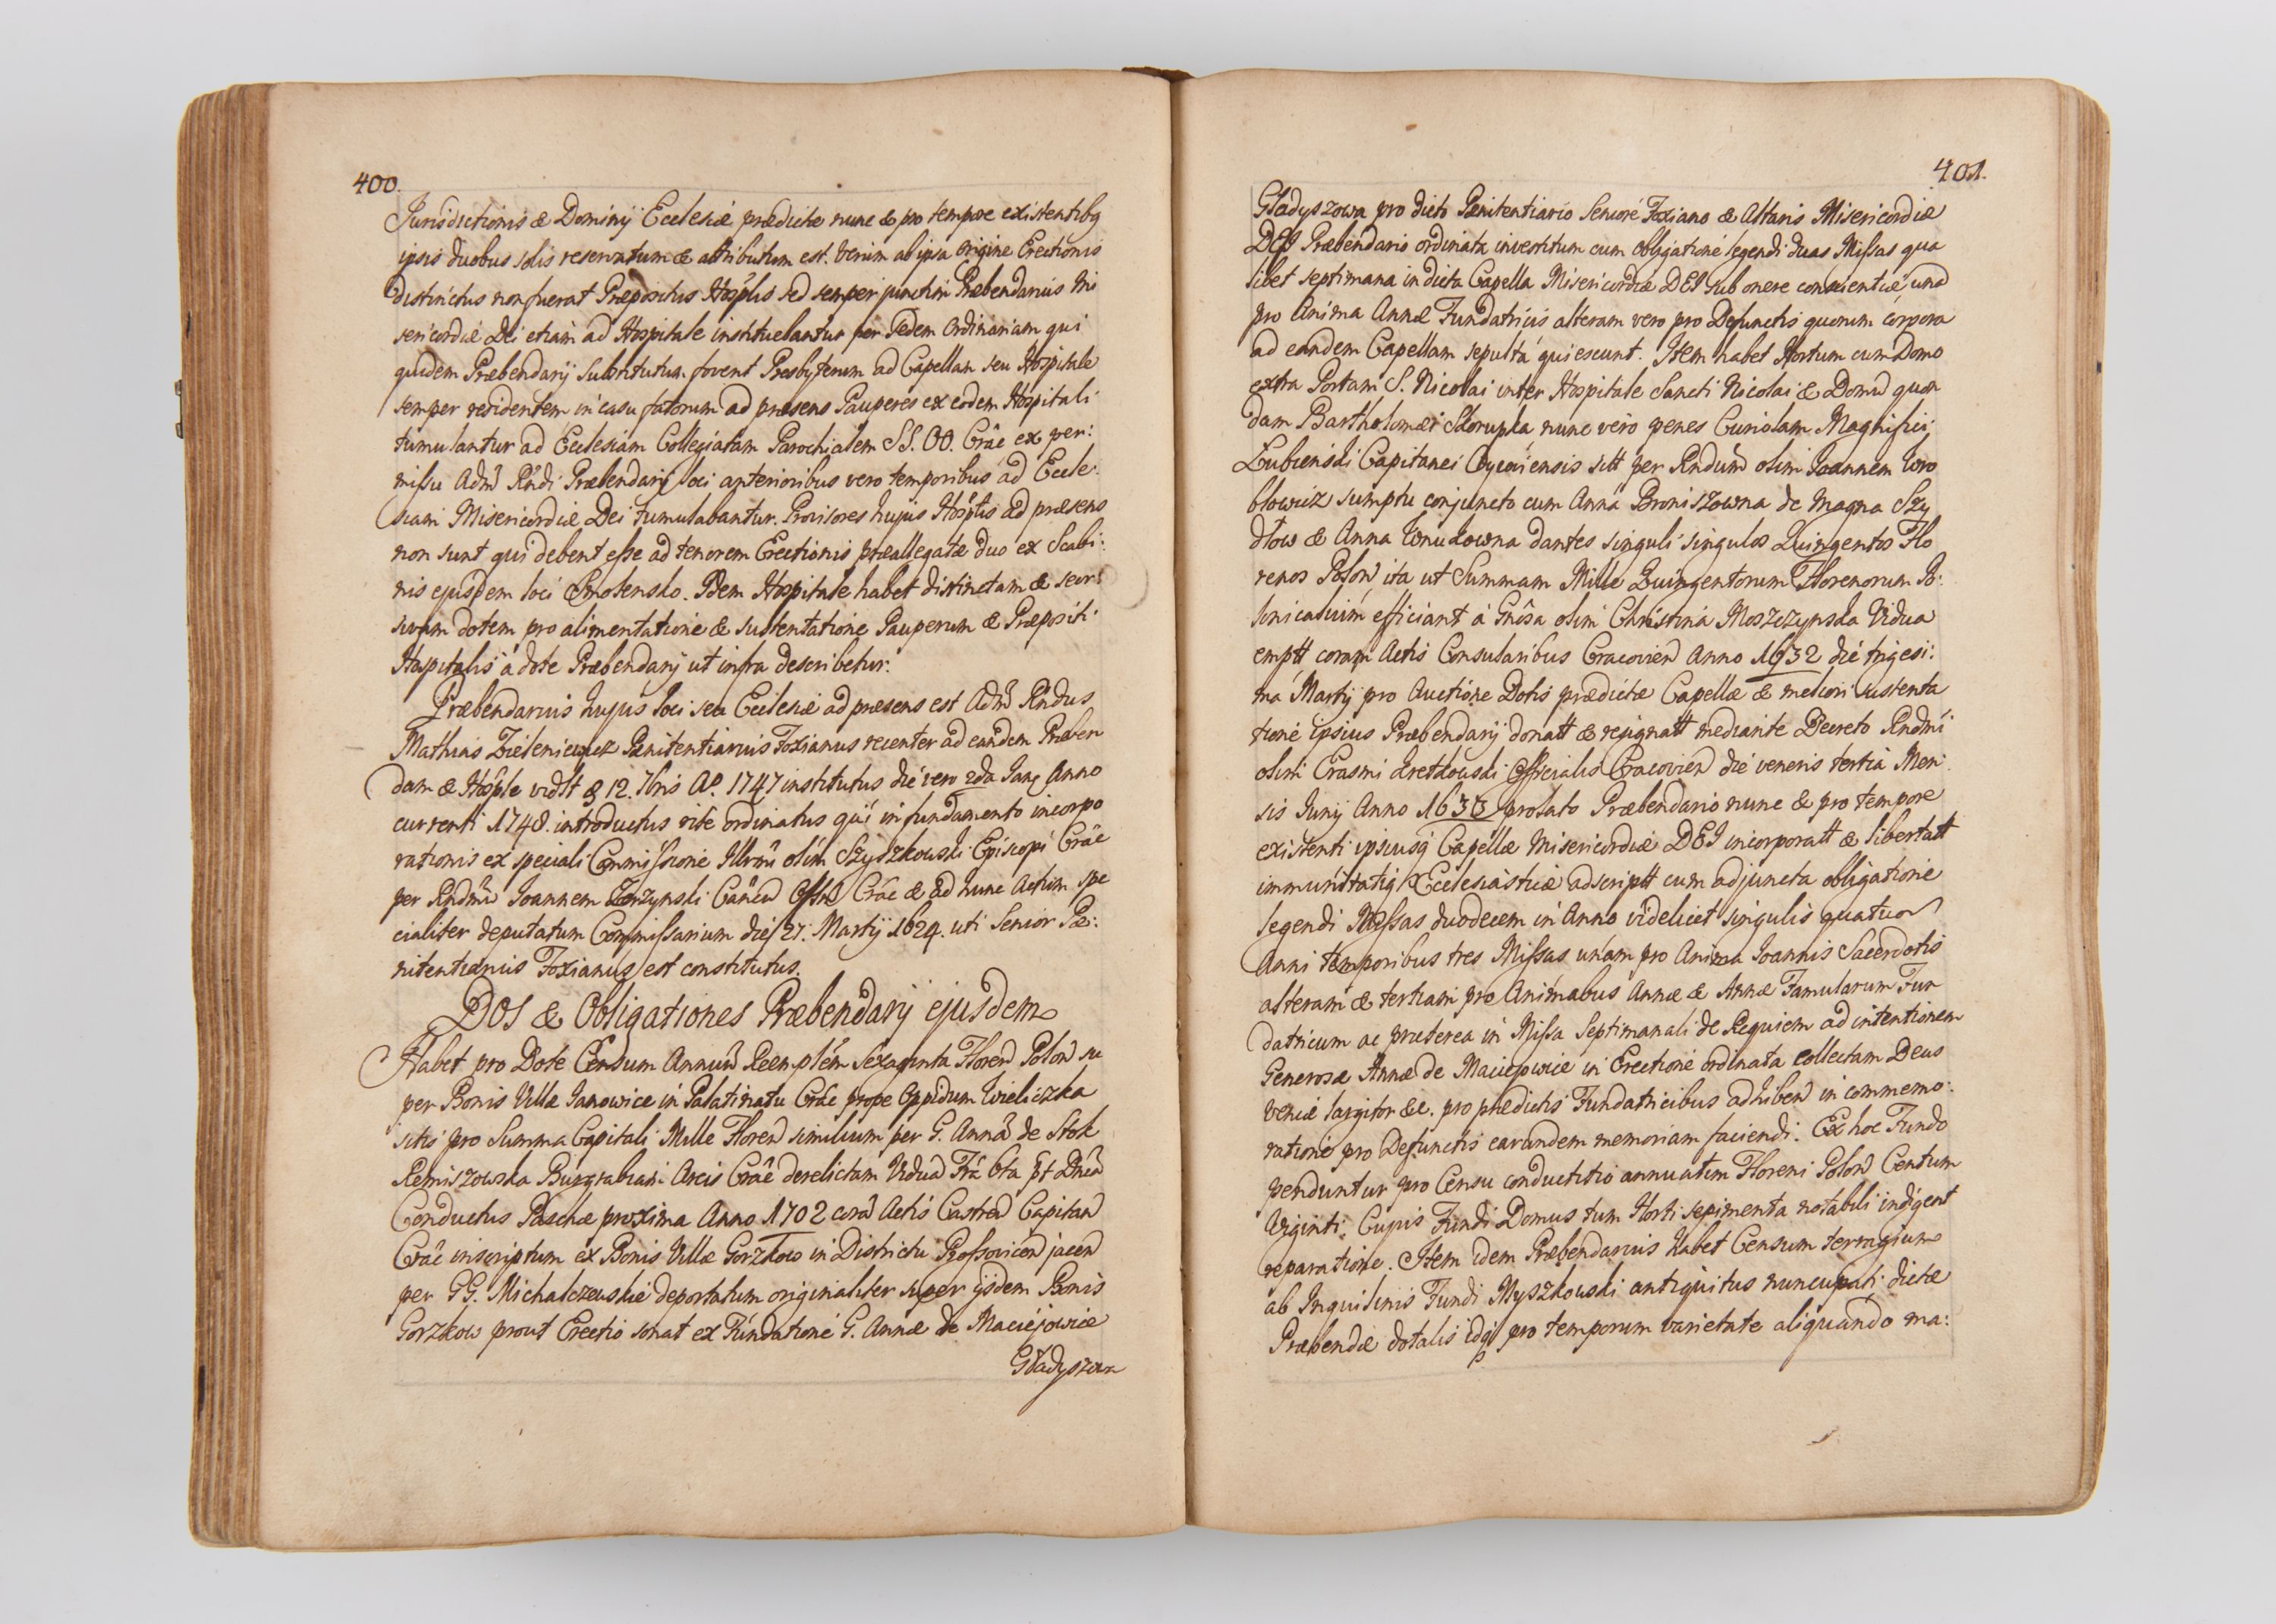 400.
Jurisdictionis & Dominij Ecclesiæ prædictæ nunc & pro tempore existentibq
ipsis duobus solis reservatum & attributum est. Verum ab ipsa origine Erectionis
distinctus non fuerat Præpositus Hosplis sed semper junctim Præbendarius Mi
sericordiæ Dei etiam ad Hospitale instituebantur per Sedem Ordinariam qui
quidem Præbendarij substitutum fovent Presbyterum ad Capellam seu Hospitale
semper residentem in casu fatorum ad præsens Pauperes ex eodem Hospitali
tumulantur ad Ecclesiam Collegiatam Parochialem SS. OO. Crãc ex per:
missu Adm Rñdi Præbendarij loci anterioribus vero temporibus ad Eccle:
siam Misericordiæ Dei tumulabantur. Provisores hujus Hosplis ad præsens
non sunt qui debent esse ad tenorem Erectionis præallegatæ duo ex Scabi:
nis ejusdem loci Smolensko. Idem Hospitale habet distinctam & seor:
sivam dotem pro alimentatione & sustentatione Pauperum & Præpositi
Hospitalis a dote Præbendarij ut infra describetur.
Præbendarius hujus loci seu Ecclesiæ ad præsens est Adm Rñdus
Mathias Zieleniewicz Pænitentiarius Foxianus recenter ad eandem Præben
dam & Hosple vidlt 12. 7bris Aº. 1747 institutus die vero 2da Jan Anno
currenti 1748. introductus rite ordinatus qui in fundamento incorpo
rationis ex speciali Commissione Illrmi olim Szyszkowski Episcopi Crãc
per Rndmu Joannem Cancu Crãc & ad hunc Actum spe
cialiter deputatum Commissarium die 27. Martij 1624. uti Senior Pæ:
nitentiarius Foxianus est constitutus.
DOS & Obligationes Præbendarij ejusdem
Habet pro Dote Censum Annuu Reemplem Sexaginta Floren Polon su
per Bonis Villæ Janowice in Palatinatu Crãc prope Oppidum Wieliczka
sitis pro Summa Capitali Mille Floren similium per G. Annã de Stok
Remiszowska Burgrabiani Arcis Crãc derelictam Viduã
Conductus Paschæ proxima Anno 1702 corã Actis Castren Capitan
Crãc inscriptum ex Bonis Villæ Gorzkow in Districtu Prossovicen jacen
per GG. Michalczewskie deportatum originaliter super ijsdem Bonis
Gorzkow prout Erectio sonat ex Fundatione G. Annæ de Maciejowice
Gładyszow
401.
Gładyszowa pro dicto Pænitentiario Seniore Foxiano & Altaris Misericordiæ
DEI Præbendario ordinata investitum cum obligatione legendi duas Missas qua
libet septimana in dicta Capella Misericordiæ DEI sub onere conscientiæ una
pro Anima Annæ Fundatricis alteram vero pro Defunctis quorum corpora
ad eandem Capellam sepulta quiescunt. Item habet Hortum cum Domo
extra Portam S. Nicolai inter Hospitale Sancti Nicolai & Domu quon
dam Bartholomæi Skorupka nunc vero penes Curiolam Magnifici
Łubienski Capitanei sitt per Rndum olim Joannem Wro
blowicz sumptu conjuncto cum Anna Broniszowna de Magna Szy
dłow & Anna Wnukowna dantes singuli singulos Quingentos Flo
renos Polon ita ut Summam Mille Quingentorum Florenorum Po:
lonicalium efficiant a Gñosa olim Christina Moszczynska Vidua
emptt coram Actis Consularibus Cracovien Anno 1632 die trigesi:
ma Martij pro Auctione Dotis prædictæ Capellæ & meliori sustenta
tione ipsius Præbendarij donatt & resignatt mediante Decreto Rndmi
olim Erasmi Kretkowski Officialis Cracovien die veneris tertia Men
sis Junij Anno 1633 prolato Præbendario nunc & pro tempore
existenti ipsiusq Capellæ Misericordiæ DEI incorporatt & libertatt
immunitatiq Ecclesiasticæ adscriptt cum adjuncta obligatione
legendi Missas duodecem in Anno videlicet singulis quatuor
Anni temporibus tres Missas unam pro Anima Joannis Sacerdotis
alteram & tertiam pro Animabus Annæ & Annæ Famularum Fun
datricum ac præterea in Missa Septimanali de Requiem ad intentionem
Generosæ Annæ de Maciejowice in Erectione ordinata collectam Deus
veniæ largitor &c. pro prædictis Fundatricibus adhiben in commemo:
ratione pro Defunctis earundem memoriam faciendi. Ex hoc Fundo
penduntur pro Censu conductitio annuatim Floreni Polon Centum
Viginti, Cujus Fundi Domus tum Horti sepimenta notabili indigent
reparatione. Item idem Præbendarius Habet Censum terragium
ab Inquilinis Fundi Myszkowski antiquitus nuncupati dictæ
Præbendæ dotalis idq pro temporum varietate aliquando ma: